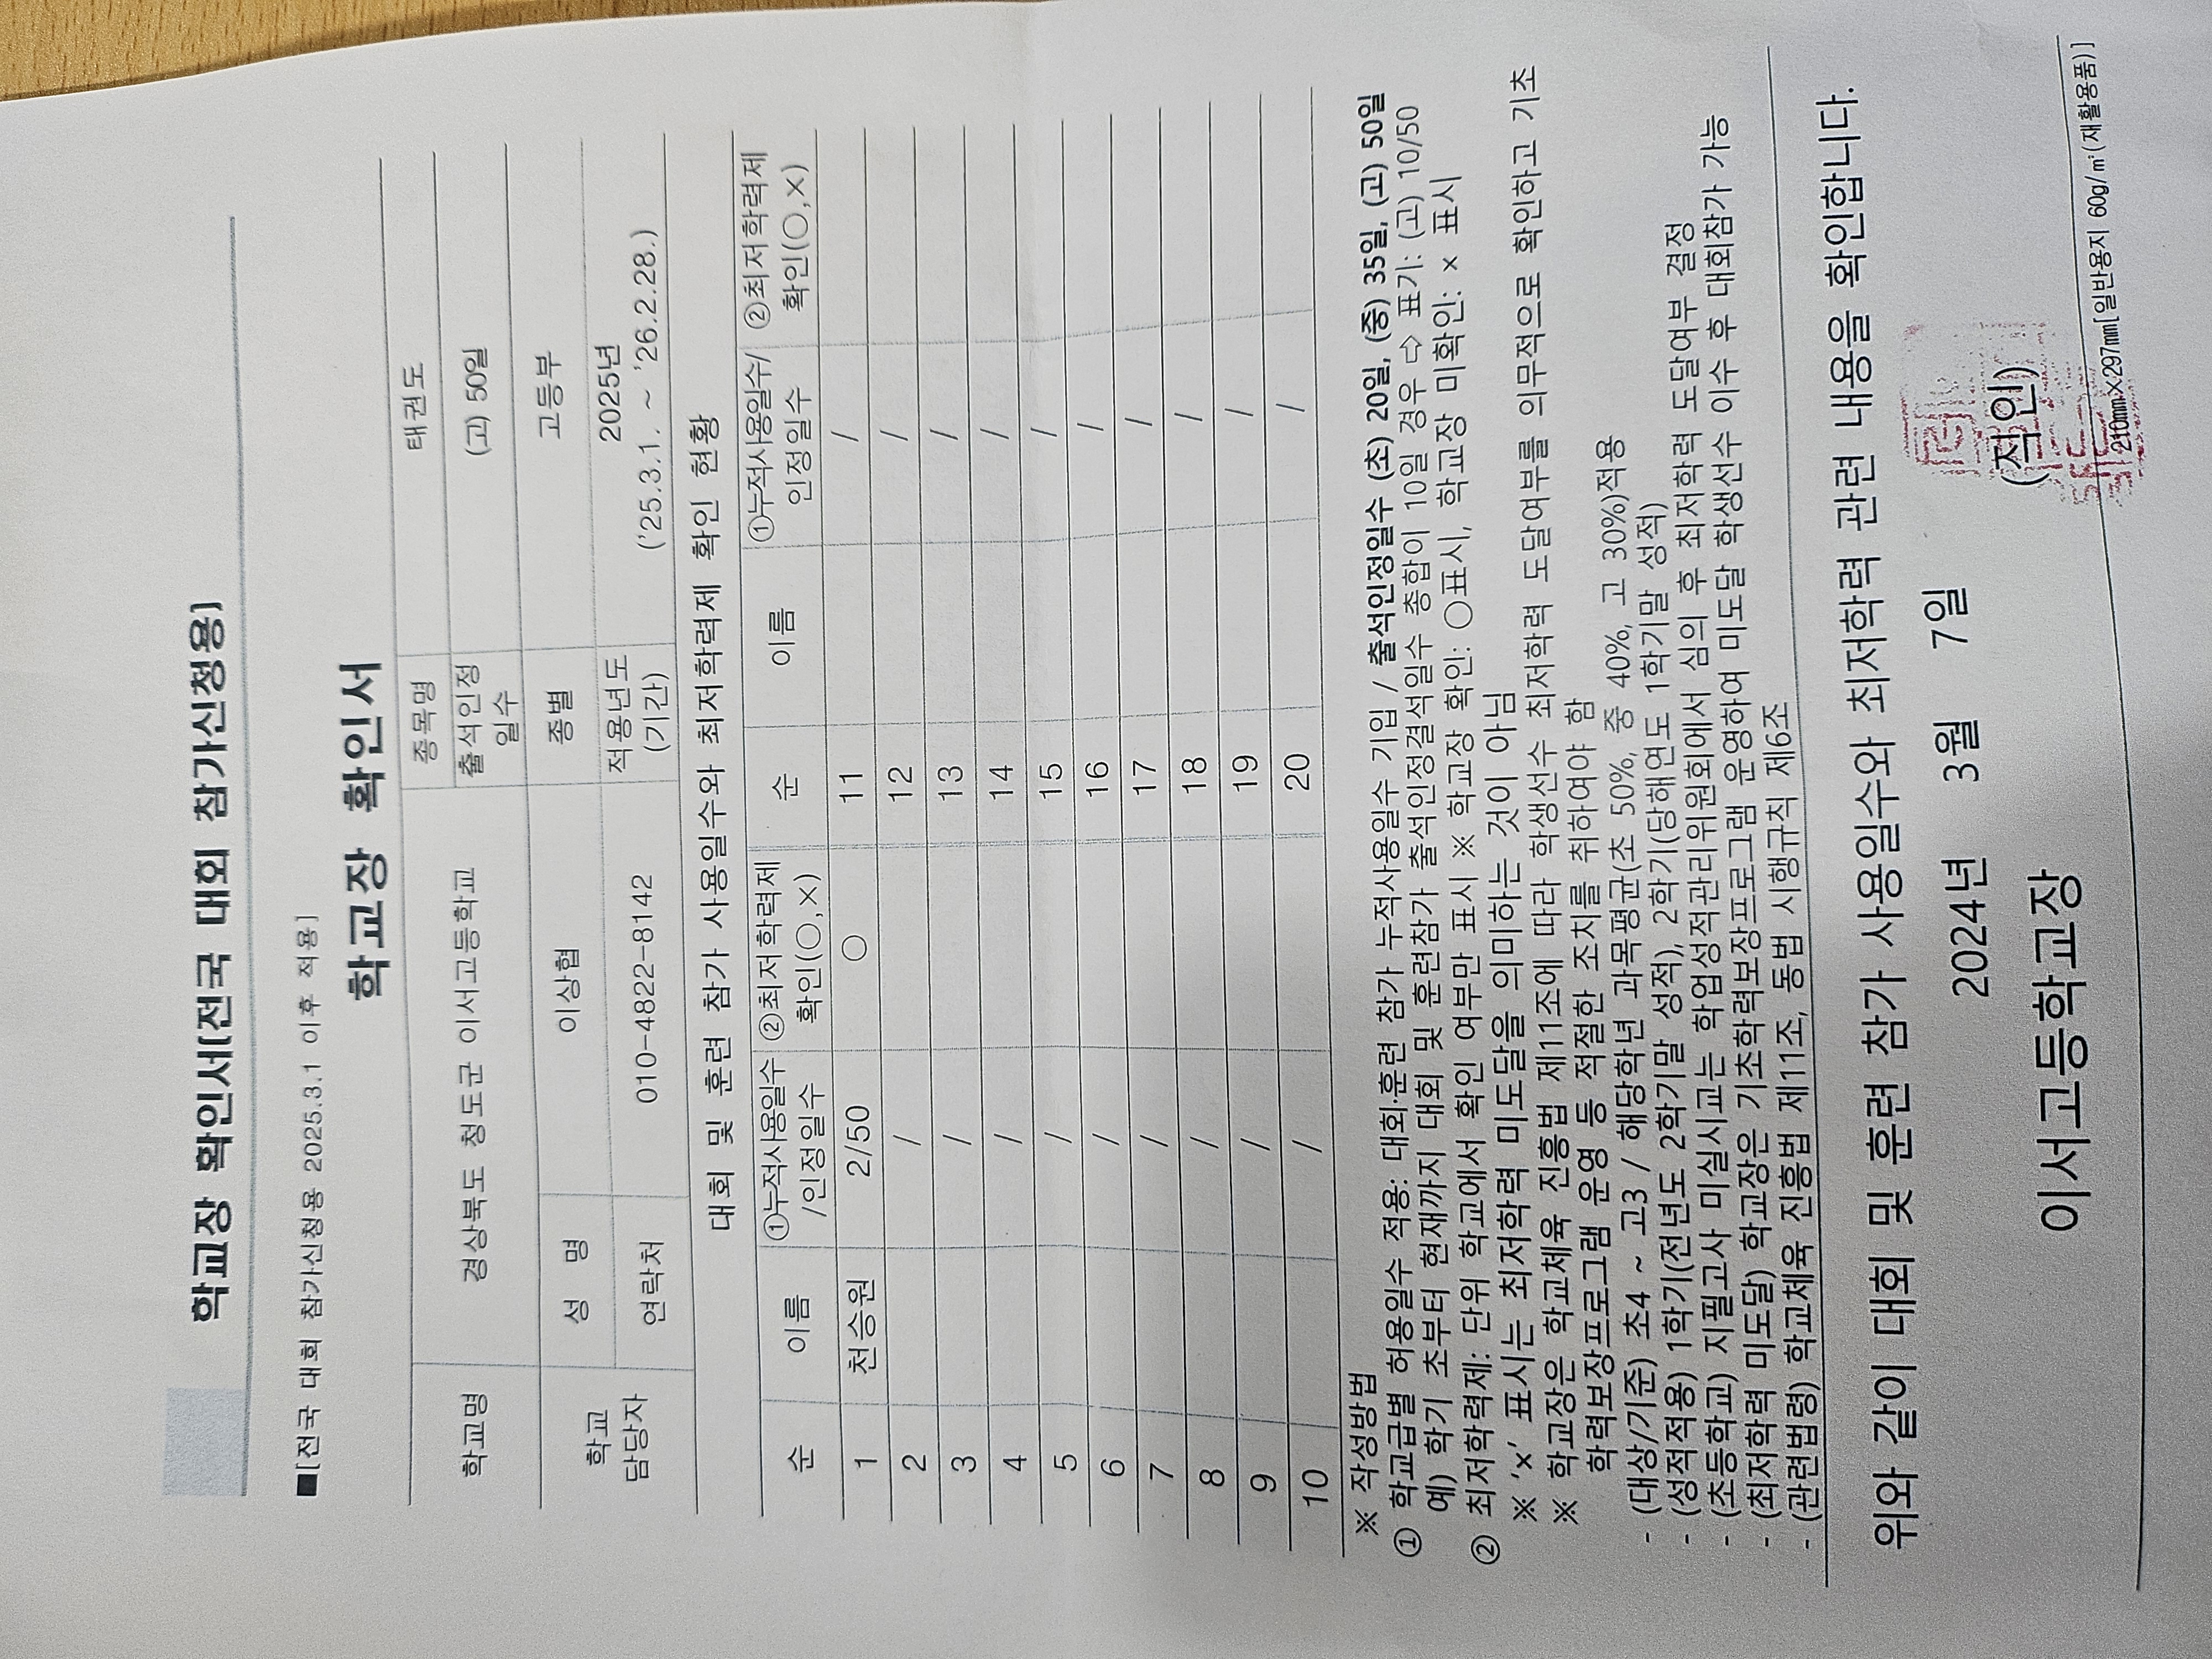 학교장 확인서(전국 대회 참가신청용)
■[전국 대회 참가신청용 2025.3.1 이후 적용]
학교장 확인서
학교명 경상북도 청도군 이서고등학교 종목명 태권도
출석인정일수 (고) 50일
학교 담당자 성 명 이상협 종별 고등부
연락처 010-4822-8142 적용년도(기간) 2025년
('25.3.1. ~ '26.2.28.)
대회 및 훈련 참가 사용일수와 최저학력제 확인 현황
순 이름 ①누적사용일수/인정일수 ②최저학력제 확인(○,×) 순 이름 ①누적사용일수/인정일수 ②최저학력제 확인(○,×)
1 천승원 2/50 ○ 11 /
2 / 12 /
3 / 13 /
4 / 14 /
5 / 15 /
6 / 16 /
7 / 17 /
8 / 18 /
9 / 19 /
10 / 20 /
※ 작성방법
① 학교급별 허용일수 적용: 대회·훈련 참가 누적사용일수 기입 / 출석인정일수 (초) 20일, (중) 35일, (고) 50일
예) 학기 초부터 현재까지 대회 및 훈련참가 출석인정결석일수 총합이 10일 경우 ⇨ 표기: (고) 10/50
② 최저학력제: 단위 학교에서 확인 여부만 표시 ※ 학교장 확인: ○표시, 학교장 미확인: × 표시
※ '×' 표시는 최저학력 미도달을 의미하는 것이 아님
※ 학교장은 학교체육 진흥법 제11조에 따라 학생선수 최저학력 도달여부를 의무적으로 확인하고 기초
학력보장프로그램 운영 등 적절한 조치를 취하여야 함
- (대상/기준) 초4 ~ 고3 / 해당학년 과목평균(초 50%, 중 40%, 고 30%)적용
- (성적적용) 1학기(전년도 2학기말 성적), 2학기(당해연도 1학기말 성적)
- (초등학교) 지필고사 미실시교는 학업성적관리위원회에서 심의 후 최저학력 도달여부 결정
- (최저학력 미도달) 학교장은 기초학력보장프로그램 운영하여 미도달 학생선수 이수 후 대회참가 가능
- (관련법령) 학교체육 진흥법 제11조, 동법 시행규칙 제6조
위와 같이 대회 및 훈련 참가 사용일수와 최저학력 관련 내용을 확인합니다.
2024년 3월 7일
이서고등학교장 (직인)
210㎜×297㎜[일반용지 60g/㎡(재활용품)]